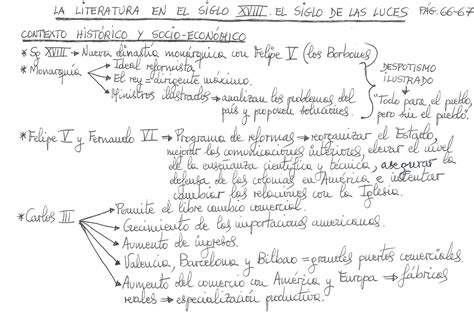 LA LITERATURA EN EL SIGLO XVIII. EL SIGLO DE LAS LUCES PÁG. 66-67
CONTEXTO HISTÓRICO Y SOCIO-ECONÓMICO
* Sg XVIII → Nueva dinastía monárquica con Felipe V (los Borbones)
* Monarquía → Ideal reformista
→ El rey = dirigente máximo.
→ Ministros ilustrados → analizan los problemas del
país y proponen soluciones.
DESPOTISMO
ILUSTRADO →
"Todo para el pueblo,
pero sin el pueblo".
* Felipe V y Fernando VI → Programa de reformas → reorganizar el Estado,
mejorar las comunicaciones interiores, elevar el nivel
de la enseñanza científica y técnica, asegurar la
defensa de las colonias en América e intentar
cambiar las relaciones con la Iglesia.
* Carlos III → Permite el libre cambio comercial.
→ Crecimiento de las importaciones americanas.
→ Aumento de ingresos.
→ Valencia, Barcelona y Bilbao = grandes puertos comerciales.
→ Aumento del comercio con América y Europa → fábricas
reales → especialización productiva.